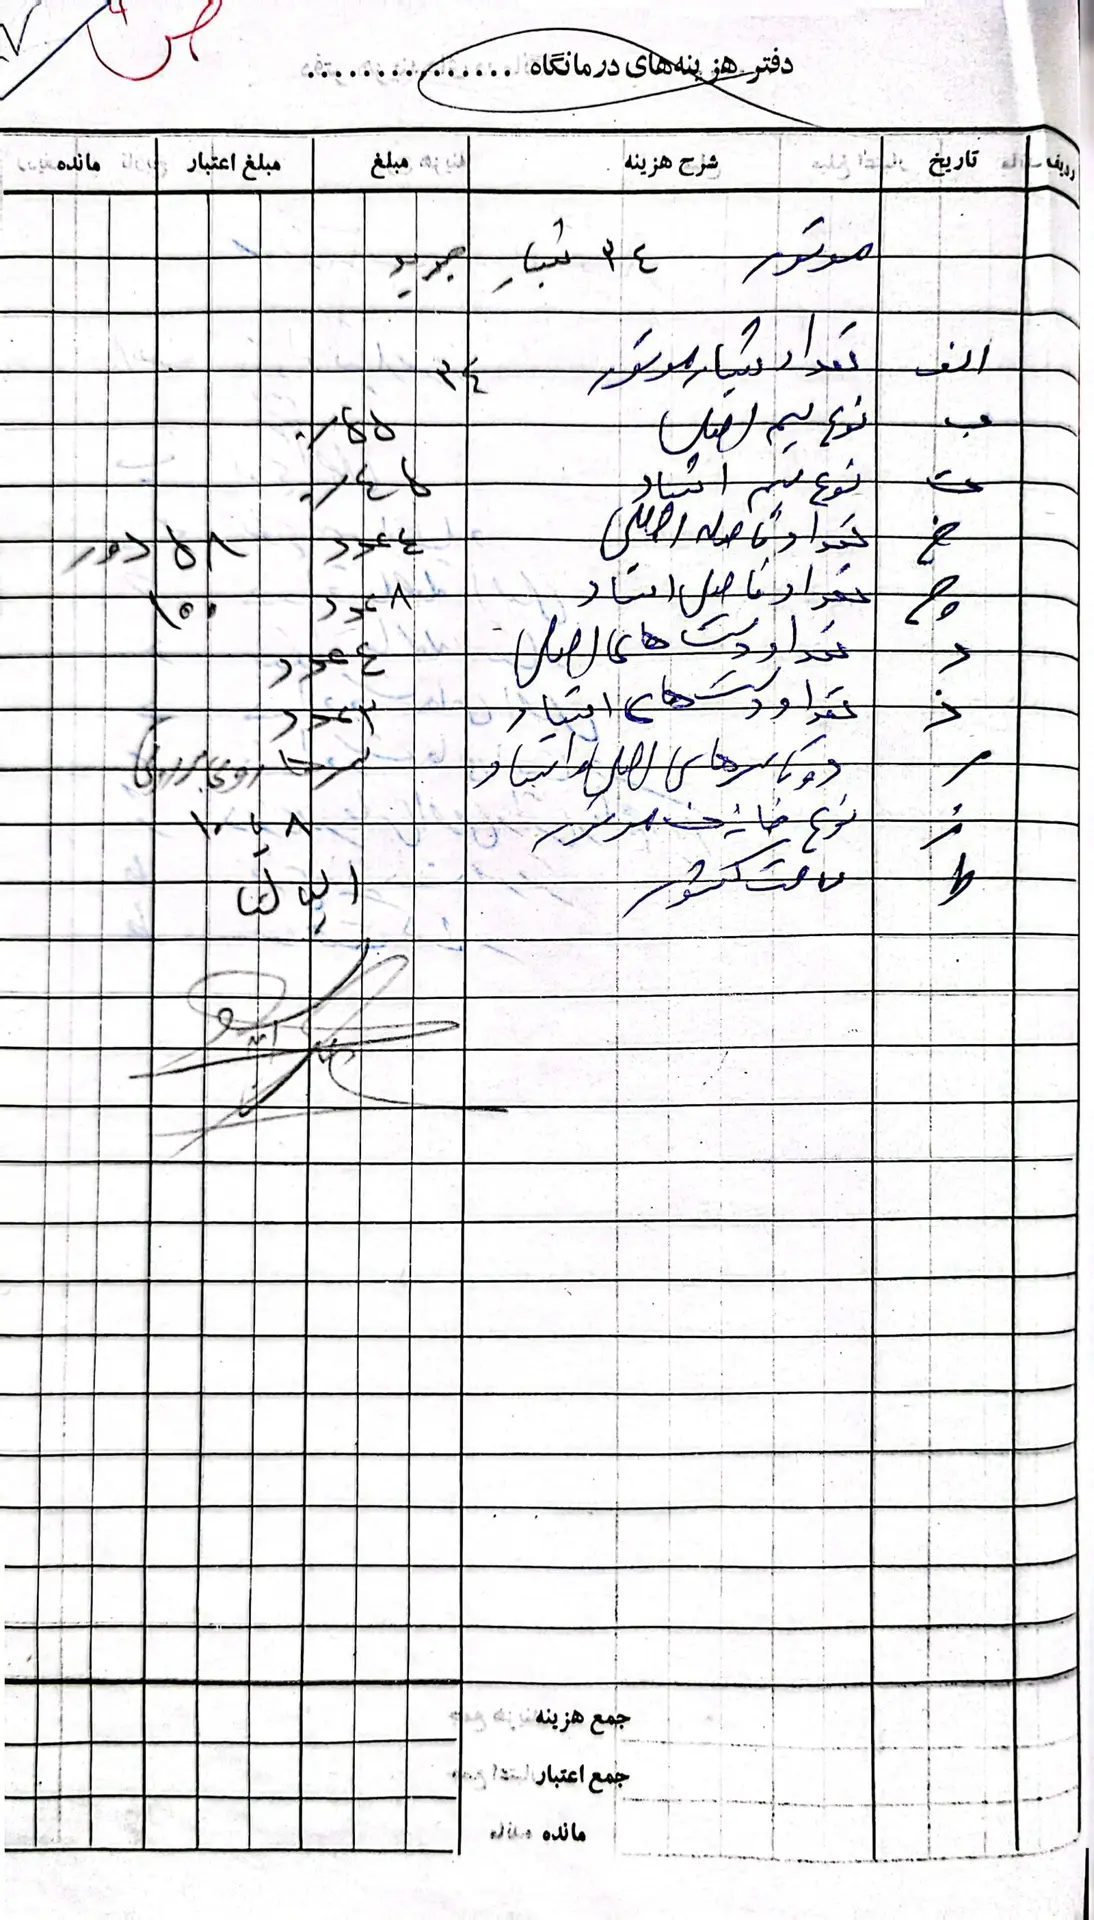 دفتر هزینه‌های درمانگاه ..............
ردیف تاریخ شرح هزینه مبلغ مبلغ اعتبار مانده
موتور ۳٤ شیار جدید
الف تعداد شیار موتور ۳٤
ب نوع سیم اصلی ۵۵/.
ت نوع سیم استارد ٤۵/.
تعداد فاصله اصلی ٤ عدد ۵۸ دور
چ تعداد فاصل استارد ۸ عدد ۱۰۰
د تعداد دست های اصلی ٤ عدد
ذ تعداد دست های استارد ۳ عدد
ر دو تا سرهای اصل و استارد
ز نوع موتور ۸ یا ۱۰
ط ساخت کشور ایتالیا
جمع هزینه
جمع اعتبار
مانده